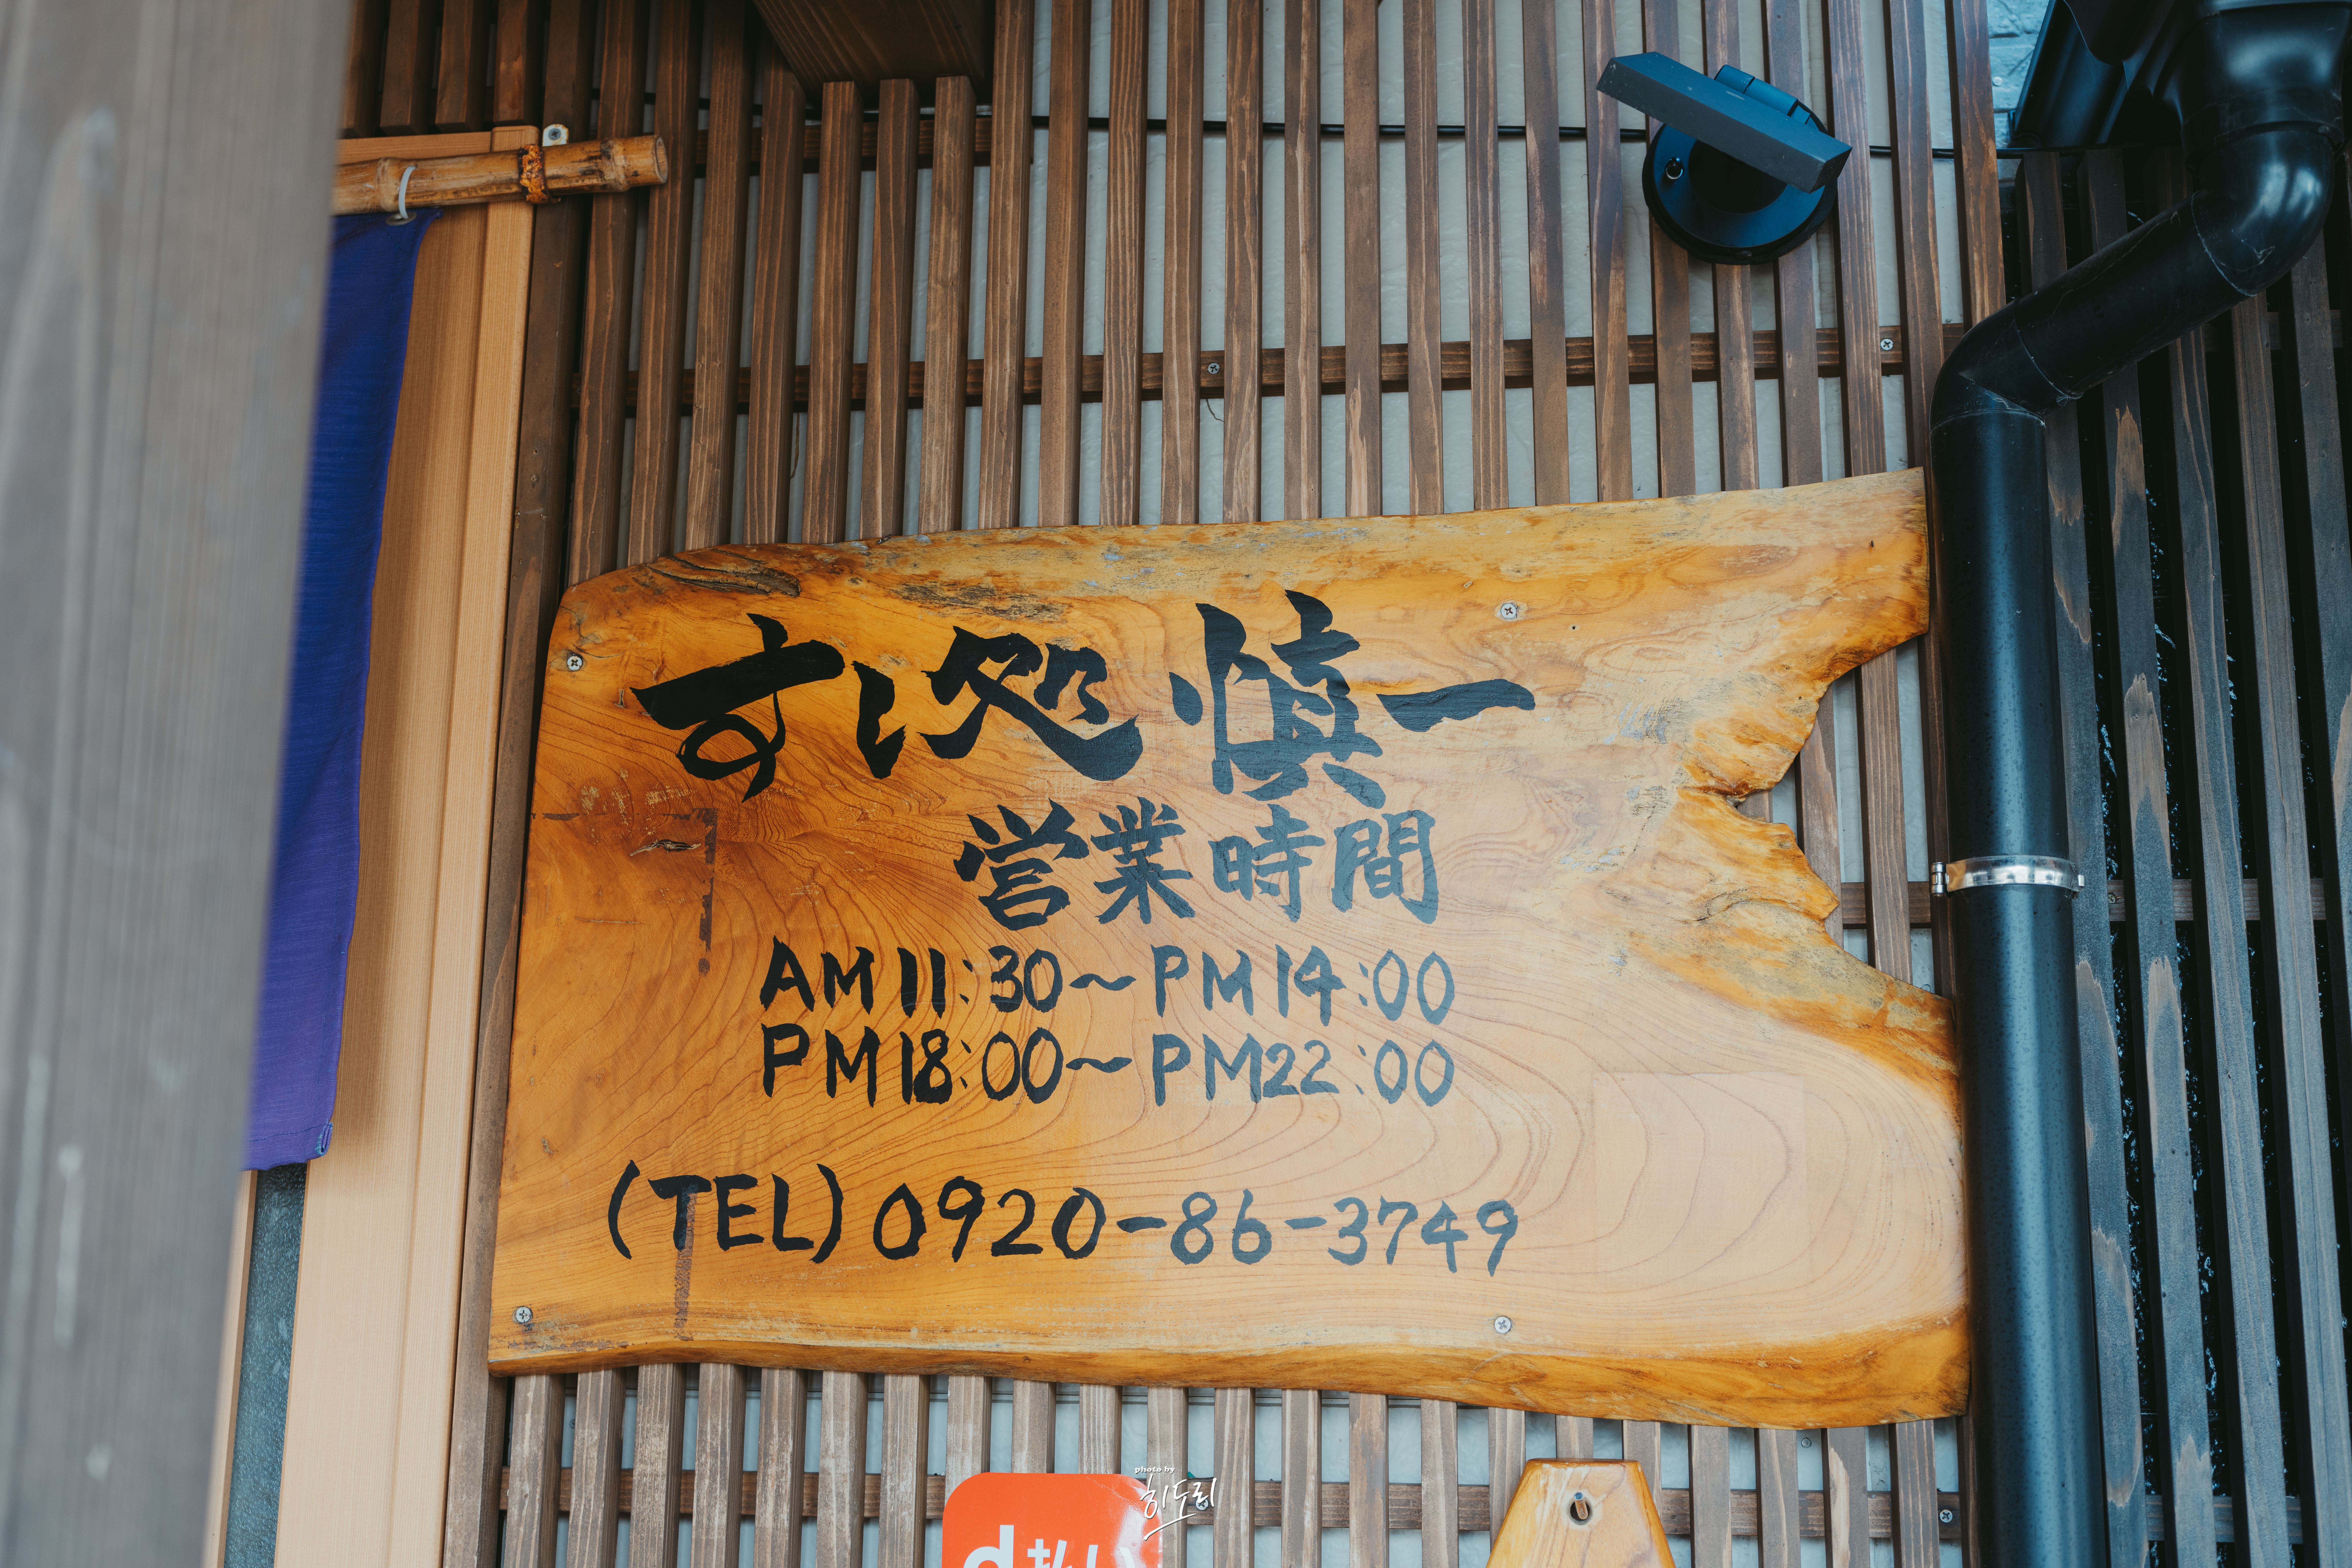 すし処 慎一
営業時間
AM11:30～PM14:00
PM18:00～PM22:00
(TEL)0920-86-3749
d払い
photo by
히도리